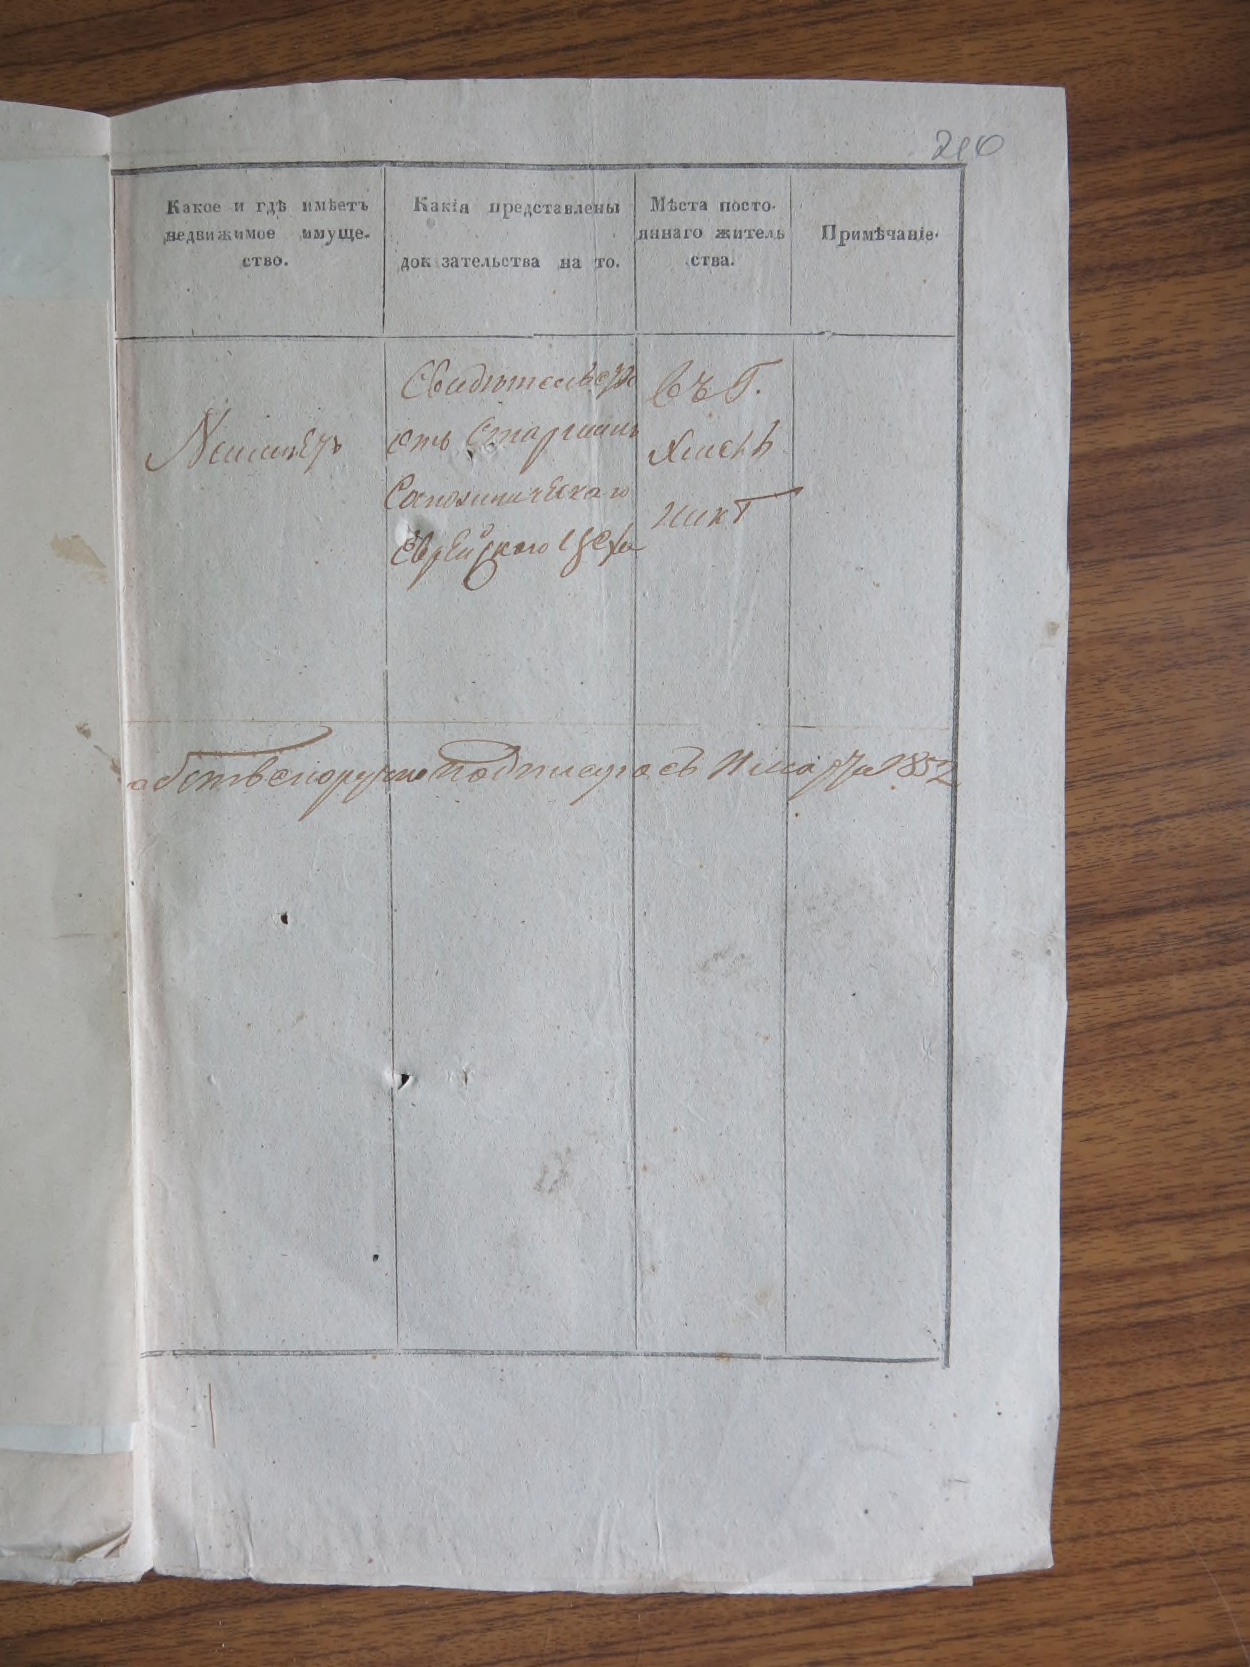 210
Какое и гдѣ имѣетъ
недвижимое имуще-
ство.
Какія представлены
док зательства на то.
Мѣста посто-
яннаго житель
ства.
Примѣчаніе.
Неимѣетъ
Свидѣтельство
отъ Старшины
Сапожническаго
Еврейскаго Цеха
въ Г.
Хмель
никѣ
обственоручно подписуюсь Марта 1852